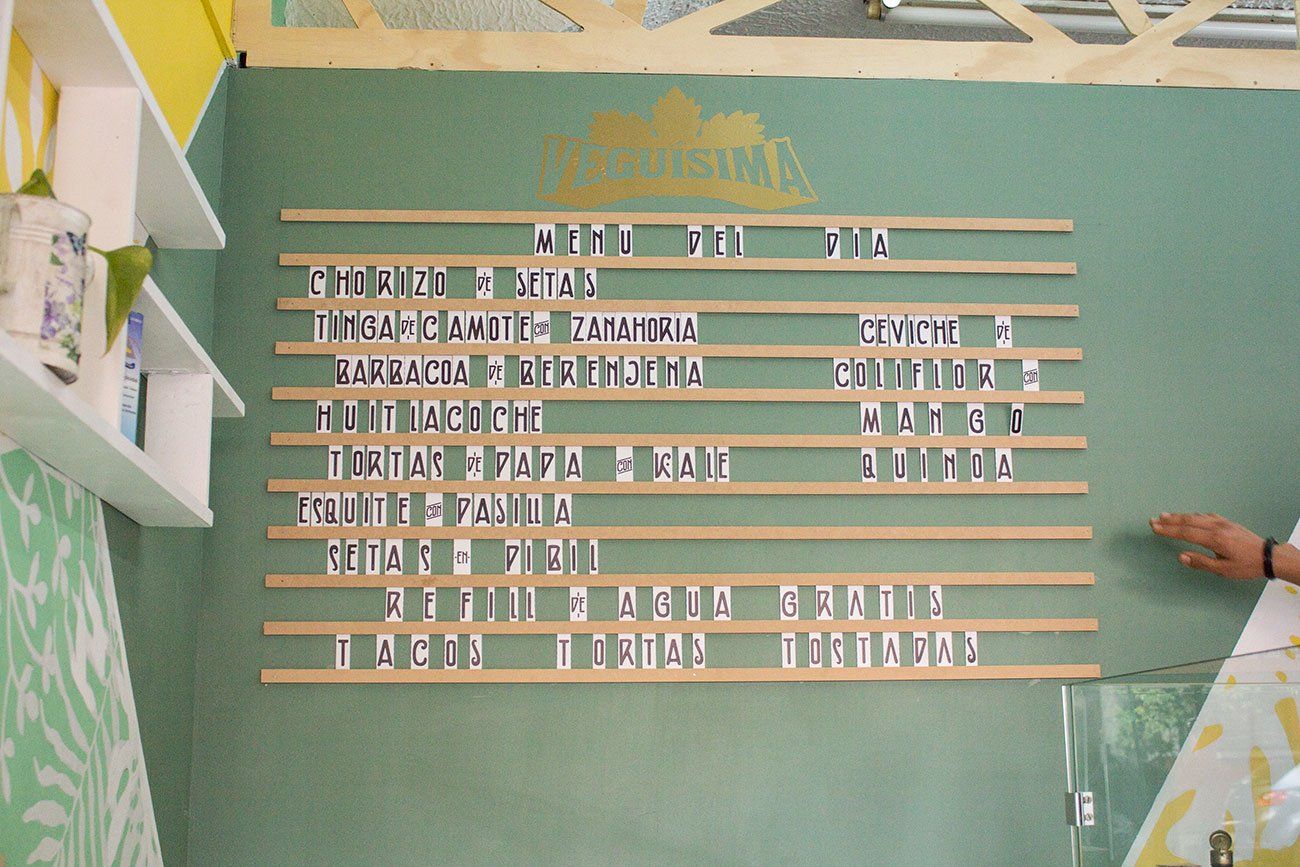 VEGUISIMA
MENU DEL DIA
CHORIZO DE SETAS
TINGA DE CAMOTE CON ZANAHORIA
BARBACOA DE BERENJENA
HUITLACOCHE
TORTAS DE PAPA CON KALE
ESQUITE CON PASILLA
SETAS EN PIBIL
CEVICHE DE
COLIFLOR CON
MANGO
QUINOA
REFILL DE AGUA GRATIS
TACOS TORTAS TOSTADAS